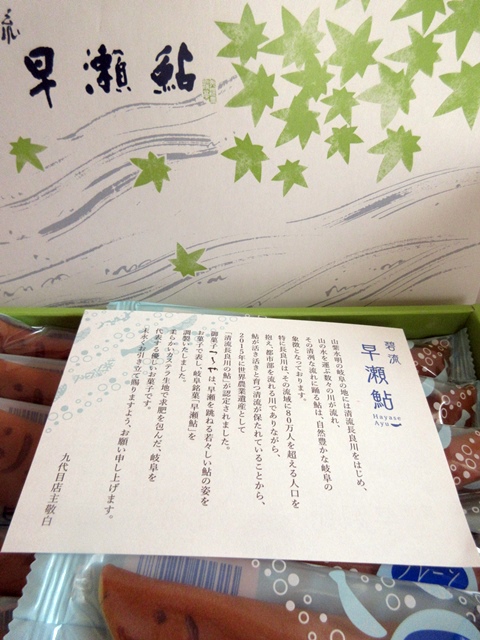 早瀬鮎
碧流
早瀬鮎
Hayase
Ayu
山紫水明の岐阜の地には清流長良川をはじめ、
山の水を運ぶ数々の川が流れ、
その清冽な流れに踊る鮎は、自然豊かな岐阜の
象徴となっております。
特に長良川は、その流域に80万人を超える人口を
抱え、都市部を流れる川でありながら、
鮎が活き活きと育つ清流が保たれていることから、
2015年に世界農業遺産として
「清流長良川の鮎」が認定されました。
御菓子つちやは、早瀬を跳ねる若々しい鮎の姿を
お菓子で表し、岐阜銘菓「早瀬鮎」を
調製いたしました。
柔らかなカステラ生地で求肥を包んだ、岐阜を
代表する優しいお菓子です。
末永くお引き立て賜りますよう、お願い申し上げます。
九代目店主敬白
プレーン